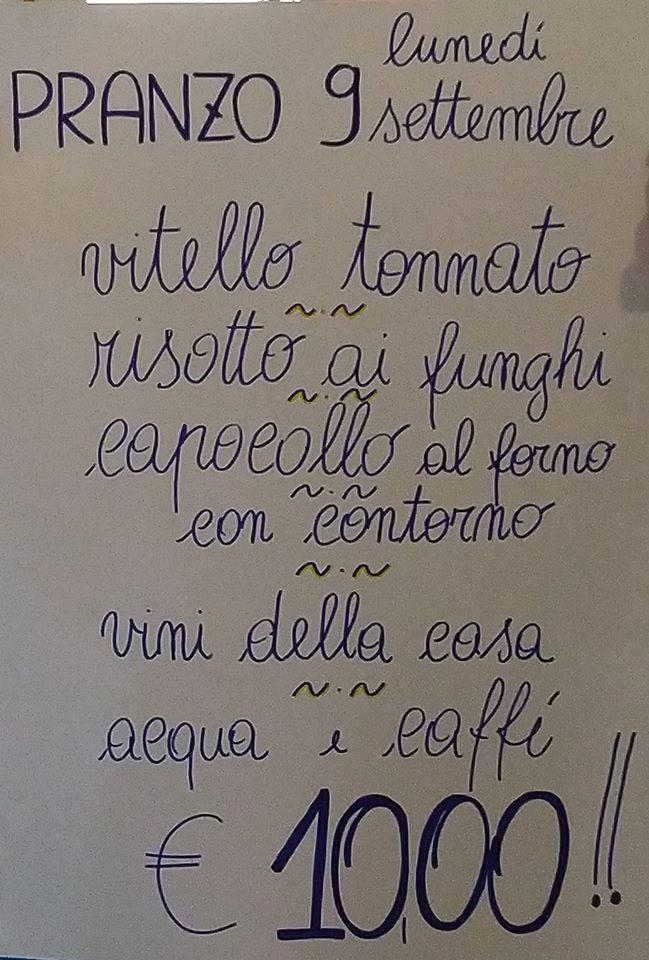 PRANZO 9 lunedí settembre
vitello tonnato
risotto ai funghi
capocollo al forno
con contorno
vini della casa
acqua e caffé
€ 10,00!!